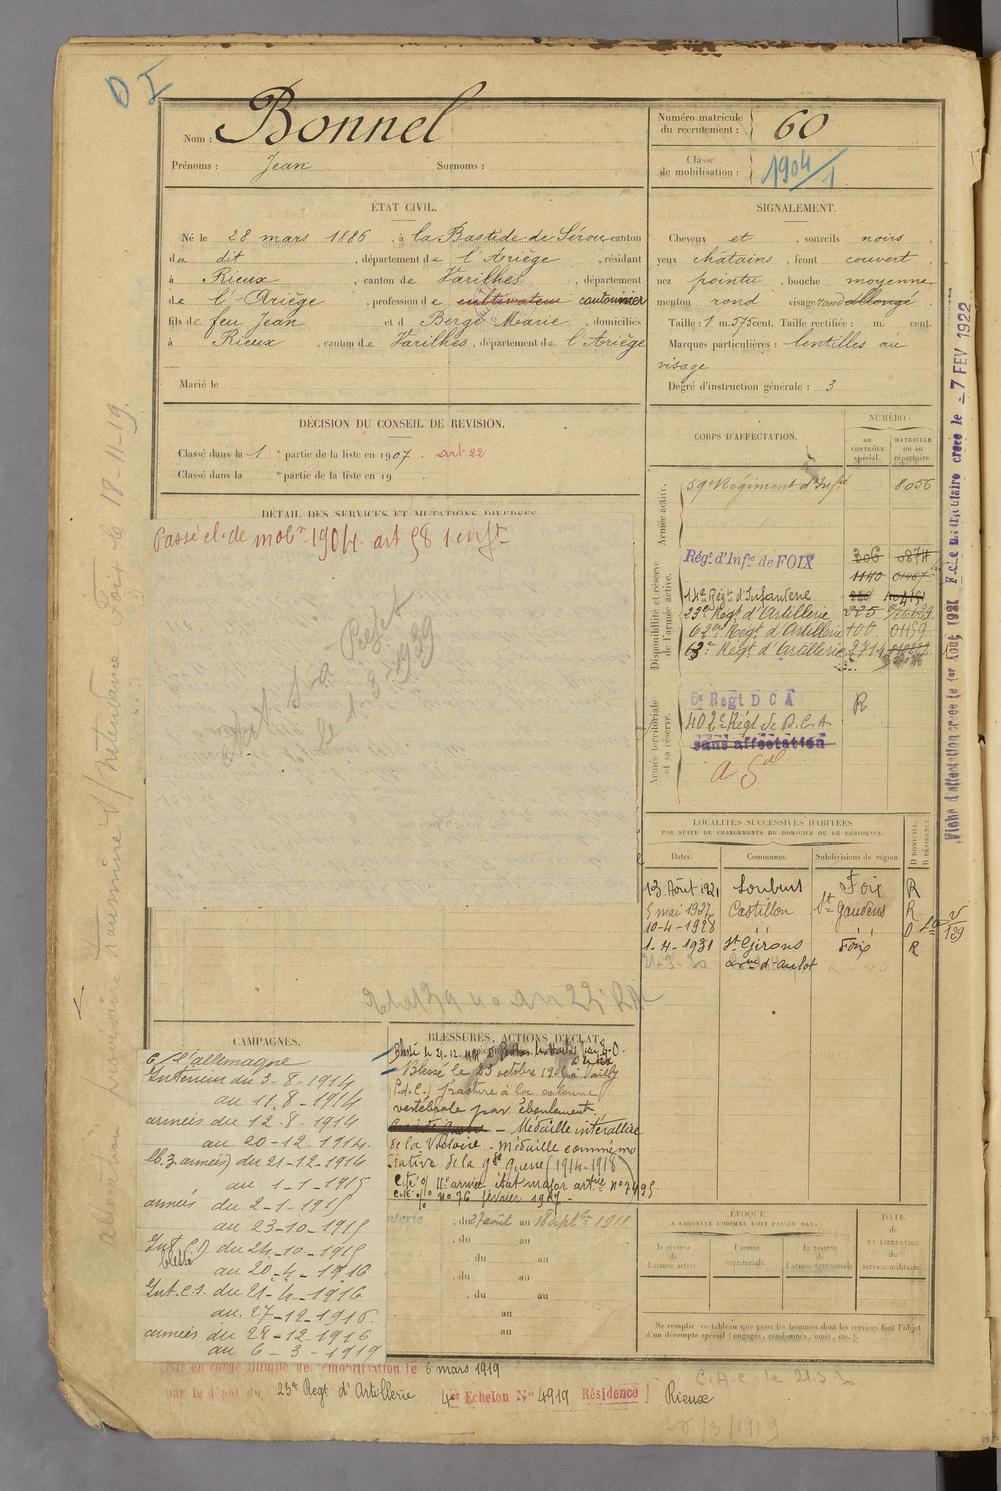 D I
Nom : Bonnel
Prénoms : Jean Surnoms :
Numéro matricule du recrutement : 60
Classe de mobilisation : 1904/1
ETAT CIVIL.
Né le 28 mars 1886, à la Bastide-de-Sérou canton
du dit, département de l'Ariège, résidant
à Rieux, canton de Varilhes, département
de l'Ariège, profession de cultivateur cantonnier
fils de feu Jean et d Berge Marie, domiciliés
à Rieux, canton de Varilhes, département de l'Ariège
Marié le
SIGNALEMENT.
Cheveux et, sourcils noirs,
yeux châtains, front couvert,
nez pointu, bouche moyenne
menton rond visage rond allongé
Taille : 1 m. 575 cent. Taille rectifiée : m. cent.
Marques particulières : lentilles au
visage
Degré d'instruction générale : 3
DÉCISION DU CONSEIL DE REVISION.
Classé dans la 1e partie de la liste en 1907. art 22
Classé dans la e partie de la liste en 19
DÉTAIL DES SERVICES ET MUTATIONS DIVERSES
Passé cl. de mobon 1904. art 58 1 enft
le 1-3-1939
CORPS D'AFFECTATION.
NUMÉRO :
au CONTRÔLE spécial.
MATRICULE ou au répertoire.
Armée active.
59e Régiment d'Infie 8056
Disponibilité et réserve de l'armée active.
Régt d'Infie de FOIX 306 0874
1140 01467
14e Régt d'Infanterie
23e Régt d'Artillerie 225
62e Régt d'Artillerie 108 01159
63e Régt d'Artillerie 2714
Armée territoriale et sa réserve.
6e Régt D C A R
402e Régt de D.C.A
sans affectation
LOCALITÉS SUCCESSIVES HABITÉES
PAR SUITE DE CHANGEMENTS DE DOMICILE OU DE RÉSIDENCE.
Dates. Communes. Subdivisions de région. D DOMICILE. R RÉSIDENCE
13 Août 1921 Loubens Foix R
5 mai 1927 Castillon St Gaudens R
10-4-1928 " " D
1-4-1931 St Girons Foix R
21-3-30
CAMPAGNES.
C/ l'allemagne
Intérieur du 3-8-1914
au 11-8-1914
armées du 12-8-1914
au 20-12-1914
armées) du 21-12-1914
au 1-1-1915
armées du 2-1-1915
au 23-10-1915
Int. C.1) du 24-10-1915
blessé
au 20-4-1916
Int. C.S. du 21-4-1916
au 27-12-1916
armées du 28-12-1916
au 6-3-1919
BLESSURES, ACTIONS D'ÉCLAT,
Blessé le 21-12-1914
Blessé le 23 octobre à Vailly
(P.d.C.) fracture à la colonne
vertébrale par éboulement.
Médaille interalliée
de la Victoire - Médaille commémo
rative de la gde guerre (1914-1918)
Cité o/ IIe armée état major artie n° 7495
Cité o/ n° 76 février 1917
du 27 août au 18 septbre 1911
du au
du au
du au
du au
au
au
ÉPOQUE
A LAQUELLE L'HOMME DOIT PASSER DANS
la réserve de l'armée active.
l'armée territoriale.
la réserve de l'armée territoriale.
DATE de LA LIBÉRATION du service militaire.
Ne remplir ce tableau que pour les hommes dont les services font l'objet
d'un décompte spécial (engagés, condamnés, omis, etc.).
Mis en congé illimité de démobilisation le 6 mars 1919
par le dépôt du 23e Régt d'Artillerie 4e Echelon N° 4919 Résidence Rieux
C.A.C. le
18/3/1919
Fiche d'affectation créée le 1er Août 1921 Fiche matriculaire créée le - 7 FEV 1922
allocation provisoire transmise S/Intendance Foix le 18-11-19.